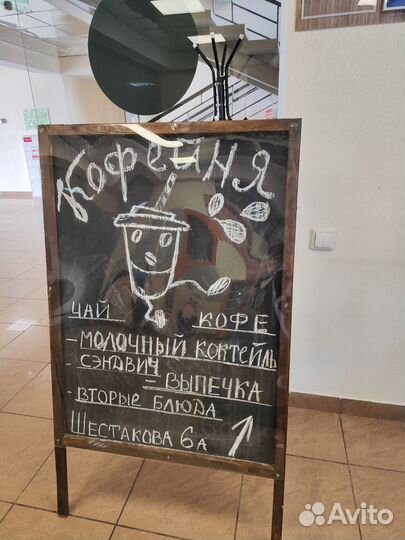 Кофейня
ЧАЙ КОФЕ
- МОЛОЧНЫЙ КОКТЕЙЛЬ
- СЭНДВИЧ
- ВЫПЕЧКА
- ВТОРЫЕ БЛЮДА
ШЕСТАКОВА 6А
Avito